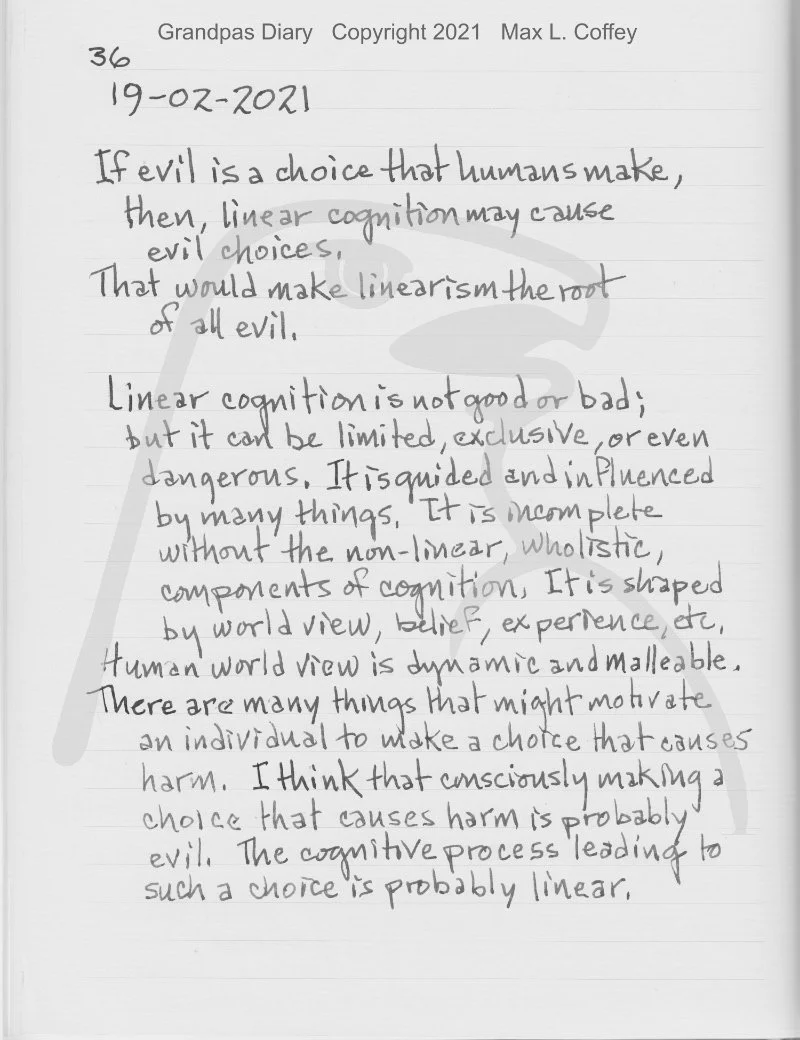 Grandpas Diary Copyright 2021 Max L. Coffey
36
19-02-2021
If evil is a choice that humans make,
then, linear cognition may cause
evil choices.
That would make linearism the root
of all evil.
Linear cognition is not good or bad;
but it can be limited, exclusive, or even
dangerous. It is guided and influenced
by many things. It is incomplete
without the non-linear, wholistic,
components of cognition. It is shaped
by world view, belief, experience, etc.
Human world view is dynamic and malleable.
There are many things that might motivate
an individual to make a choice that causes
harm. I think that consciously making a
choice that causes harm is probably
evil. The cognitive process leading to
such a choice is probably linear.